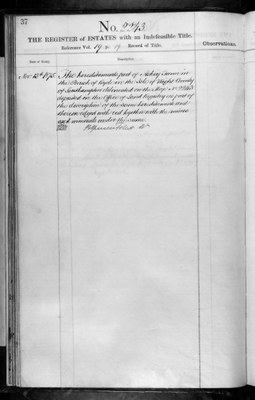 37
No. 2213.
THE REGISTER of ESTATES with an Indefeasible Title.
Reference Vol. 19 & 19 Record of Title.
Observations.
Date of Entry.
Description.
Nov 13th 1875
The hereditaments part of
the Parish of Ryde in the Isle of Wight County
of Southampton delineated on the Map No 2213
deposited in the Office of Land Registry as part of
the description of the same hereditaments and
thereon edged with red together with the mines
and minerals under the same